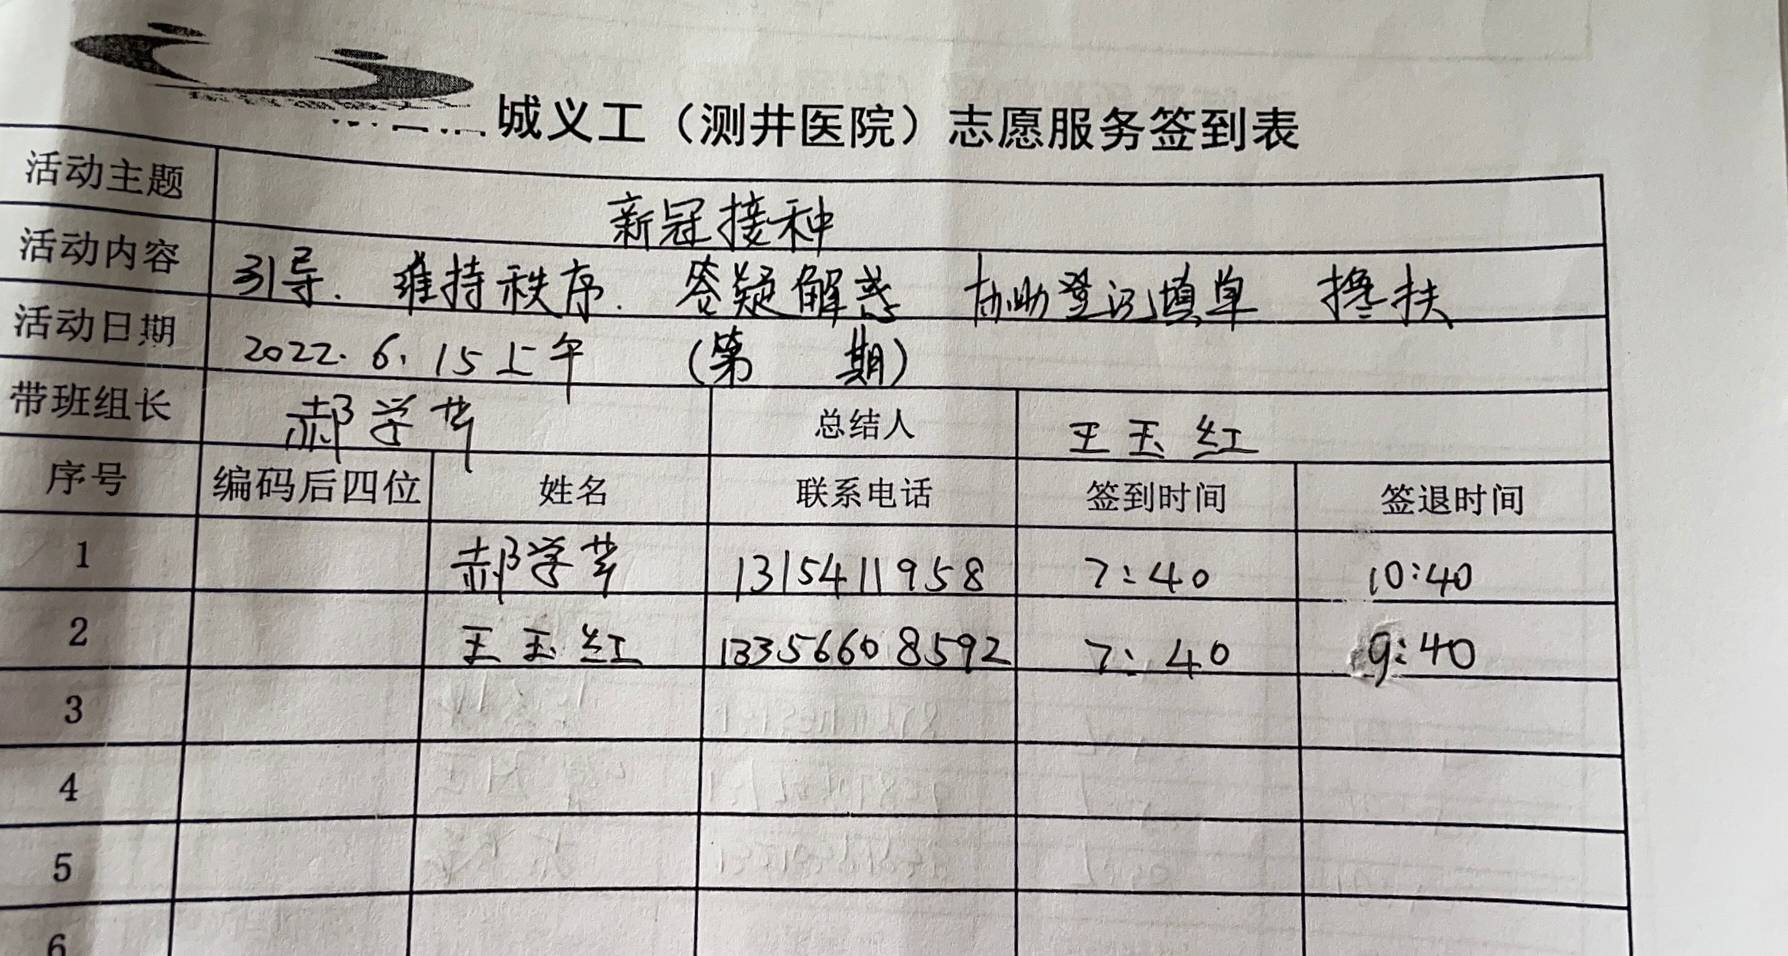 城义工（测井医院）志愿服务签到表
活动主题 新冠接种
活动内容 引导. 维持秩序. 答疑解惑 协助登记填单 搀扶
活动日期 2022.6.15上午 （第 期）
带班组长 郝学苹 总结人 王玉红
序号 编码后四位 姓名 联系电话 签到时间 签退时间
1 郝学苹 1315411958 7:40 10:40
2 王玉红 13356608592 7:40 9:40
3
4
5
6